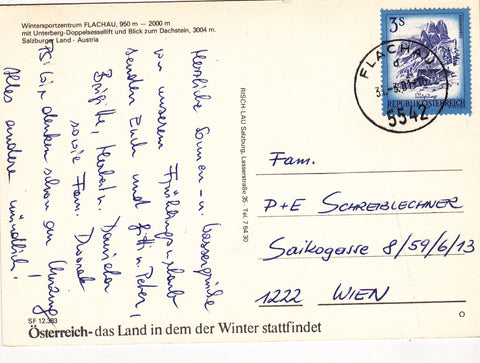 Wintersportzentrum FLACHAU, 950 m — 2000 m
mit Unterberg-Doppelsessellift und Blick zum Dachstein, 3004 m.
Salzburger Land - Austria
Herzliche Sonnen- u. Wassergrüße
von unserem Frühlingsurlaub
senden Euch und Peter,
Brigitte, Herbert u.
sowie Fam.
PS: Wir denken schon an
Alles andere mündlich!
RISCH-LAU Salzburg, Lasserstraße 35 - Tel. 7 64 30
3S
REPUBLIK ÖSTERREICH
FLACHAU
5542
Fam.
P+E SCHREIBLECHNER
Saikogasse 8/59/6/13
1222 WIEN
SF 12.383
Österreich-das Land in dem der Winter stattfindet